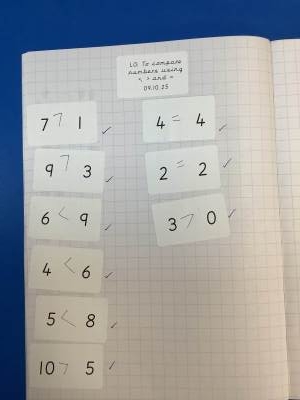 LO: To compare
numbers using
<, > and =
09.10.25
7 > 1
9 > 3
6 < 9
4 < 6
5 < 8
10 > 5
4 = 4
2 = 2
3 > 0